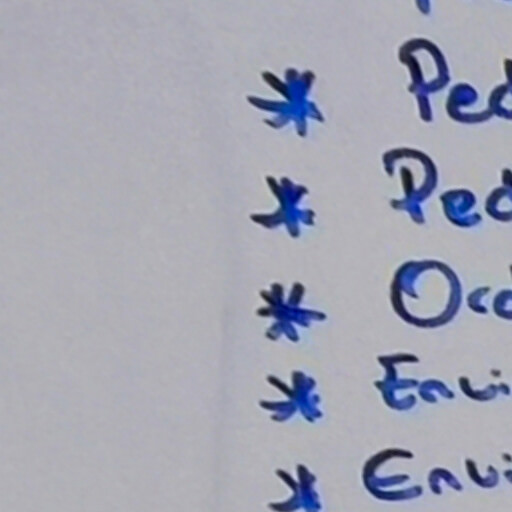 * Ped
* Ped
* Occ
* Envi
* Envi